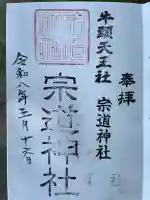 奉拝
牛頭天王社 宗道神社
宗道神社
令和八年三月十六日